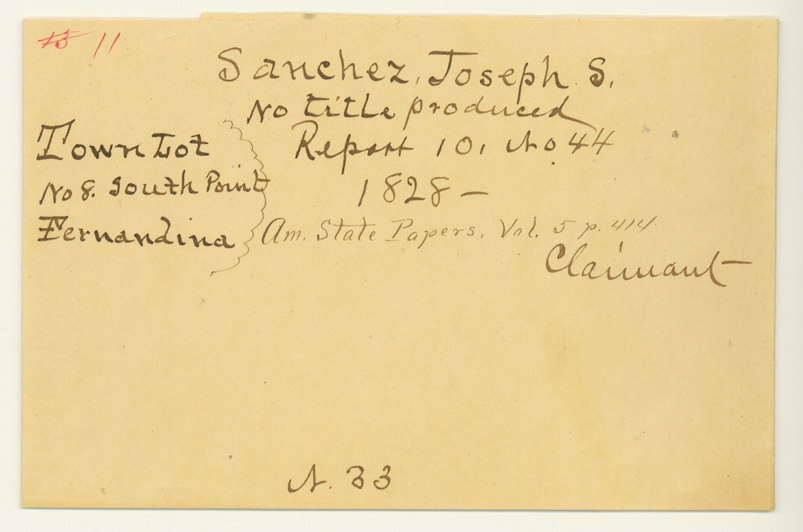 15 11
Sanchez, Joseph S.
No title produced
Town Lot Report 10, No 44
No 8. South Point 1828 —
Fernandina Am. State Papers, Vol. 5 p. 414
Claimant
N. 33